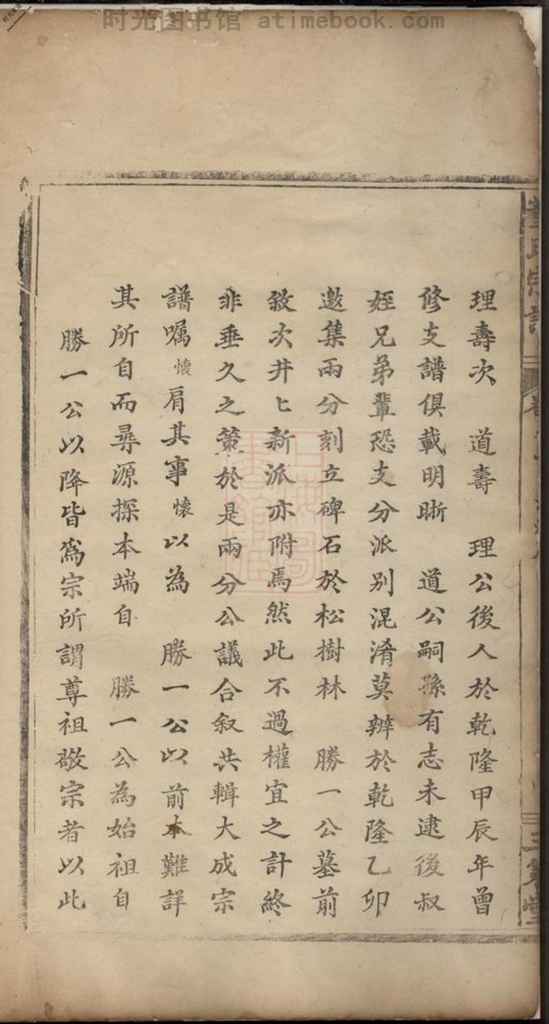 时光图书馆 atimebook.com
理壽次 道壽 理公後人於乾隆甲辰年曾
修支譜俱載明晰 道公嗣孫有志未逮後叔
姪兄弟輩恐支分派別混淆莫辨於乾隆乙卯
邀集兩分刻立碑石於松樹林 勝一公墓前
敘次井匕新派亦附焉然此不過權宜之計終
非垂久之策於是兩分公議合叙共輯大成宗
譜嘱懷肩其事懷以為 勝一公以前本難詳
其所自而尋源探本端自 勝一公為始祖自
勝一公以降皆爲宗所謂尊祖敬宗者以此